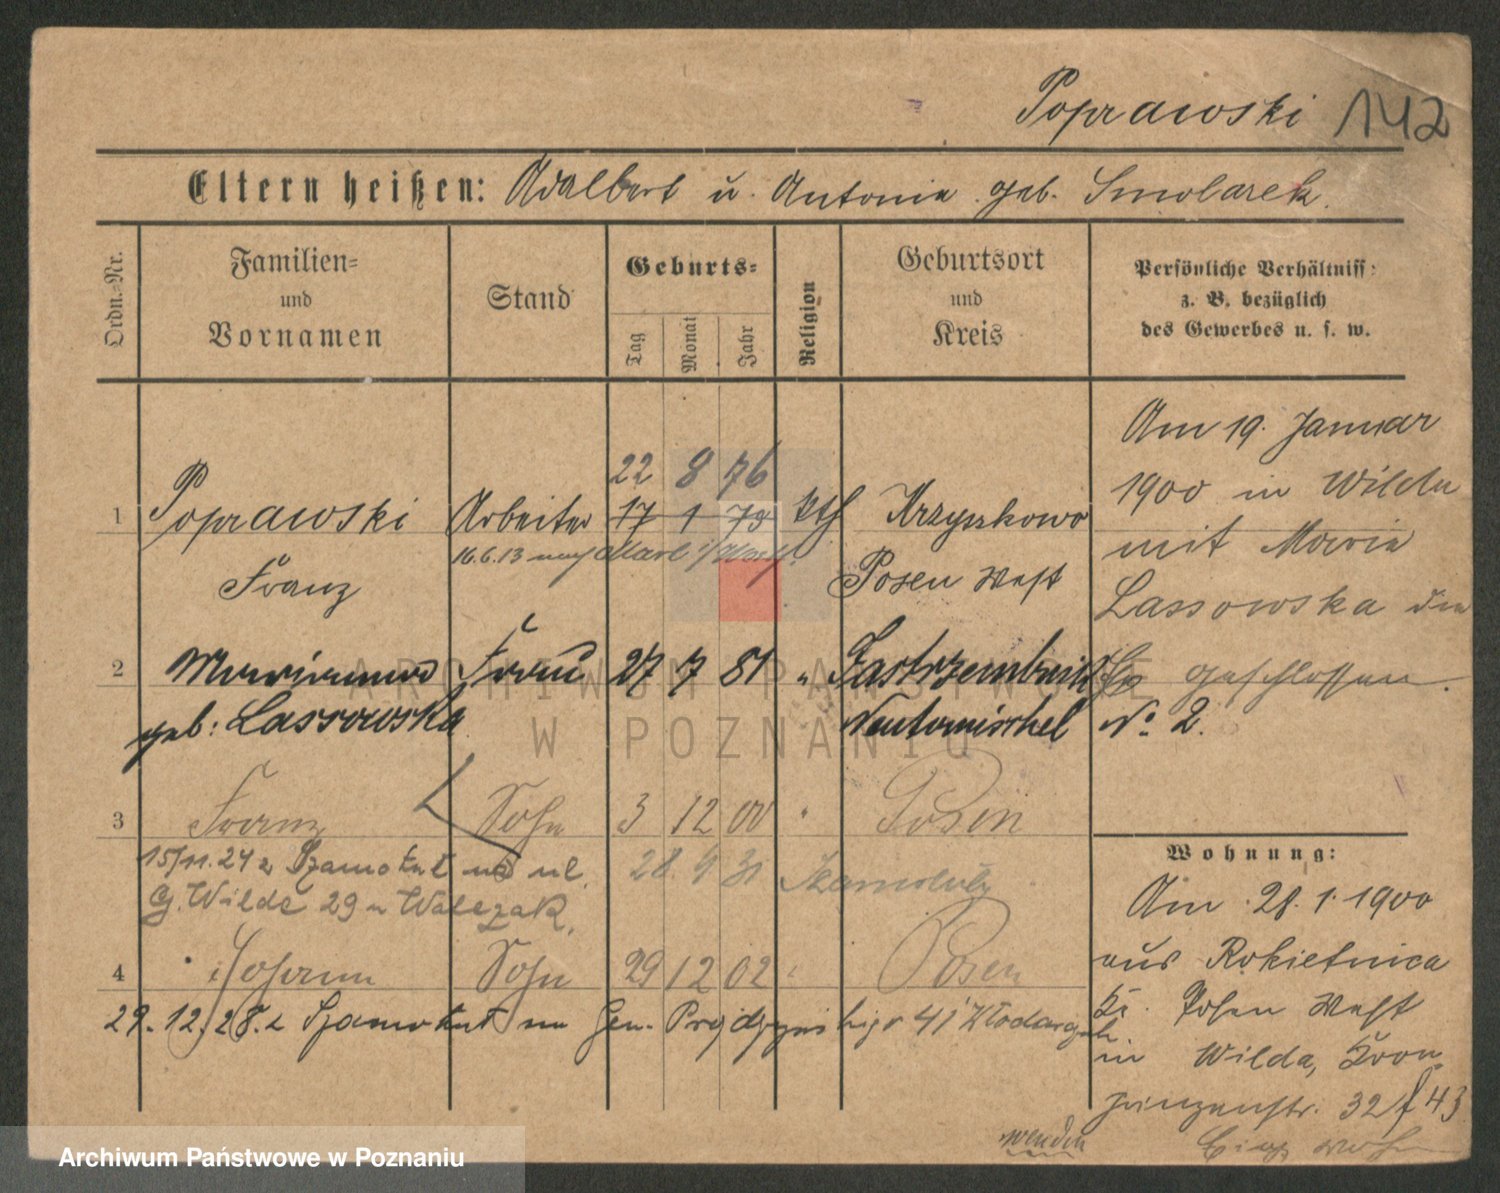 Poprawski 142
Eltern heißen: Adalbert u. Antonie geb. Smolarek.
Ordn.-Nr.
Familien-
und
Vornamen
Stand
Geburts-
Tag
Monat
Jahr
Religion
Geburtsort
und
Kreis
Persönliche Verhältniss:
z. B. bezüglich
des Gewerbes u. s. w.
22 8 76
1 Poprawski Arbeiter 17 1 kth Krzyszkowo
16.6.13
Franz Posen West
2 Frau 27 7 81 " Jastrzembnik
geb: Lassowska Neutomischel
3 Franz Sohn 3 12 00 " Posen
15/11.24 z Szamotuł na ul. 28. 9 31 Szamotuły
G. Wilde 29 u Walczak.
4 Johann Sohn 29 12 02 " Posen
29.12.28. z Szamotuł na Gen. 41
Am 19. Januar
1900 in Wilda
mit Maria
Lassowska die
Ehe geschlossen.
No. 2.
Wohnung:
Am 28. 1. 1900
aus Rokietnica
Kr. Posen West
in Wilda, Kron
prinzenstr. 32/43
wenden
ARCHIWUM PAŃSTWOWE
W POZNANIU
Archiwum Państwowe w Poznaniu